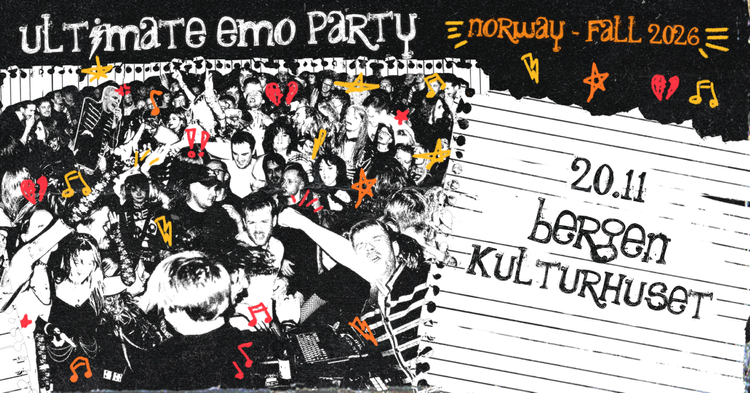 ULTiMATE EMO PARTY
NORWAY - FALL 2026
20.11
bERGEN
KULTURHUSET